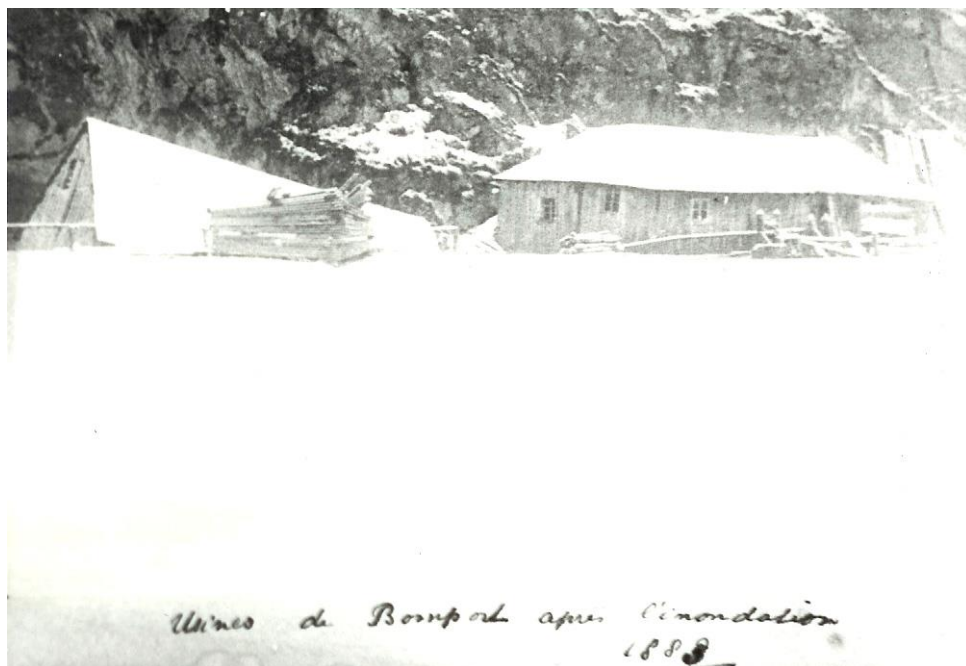 Usines de Bomport apres l'inondation
1888